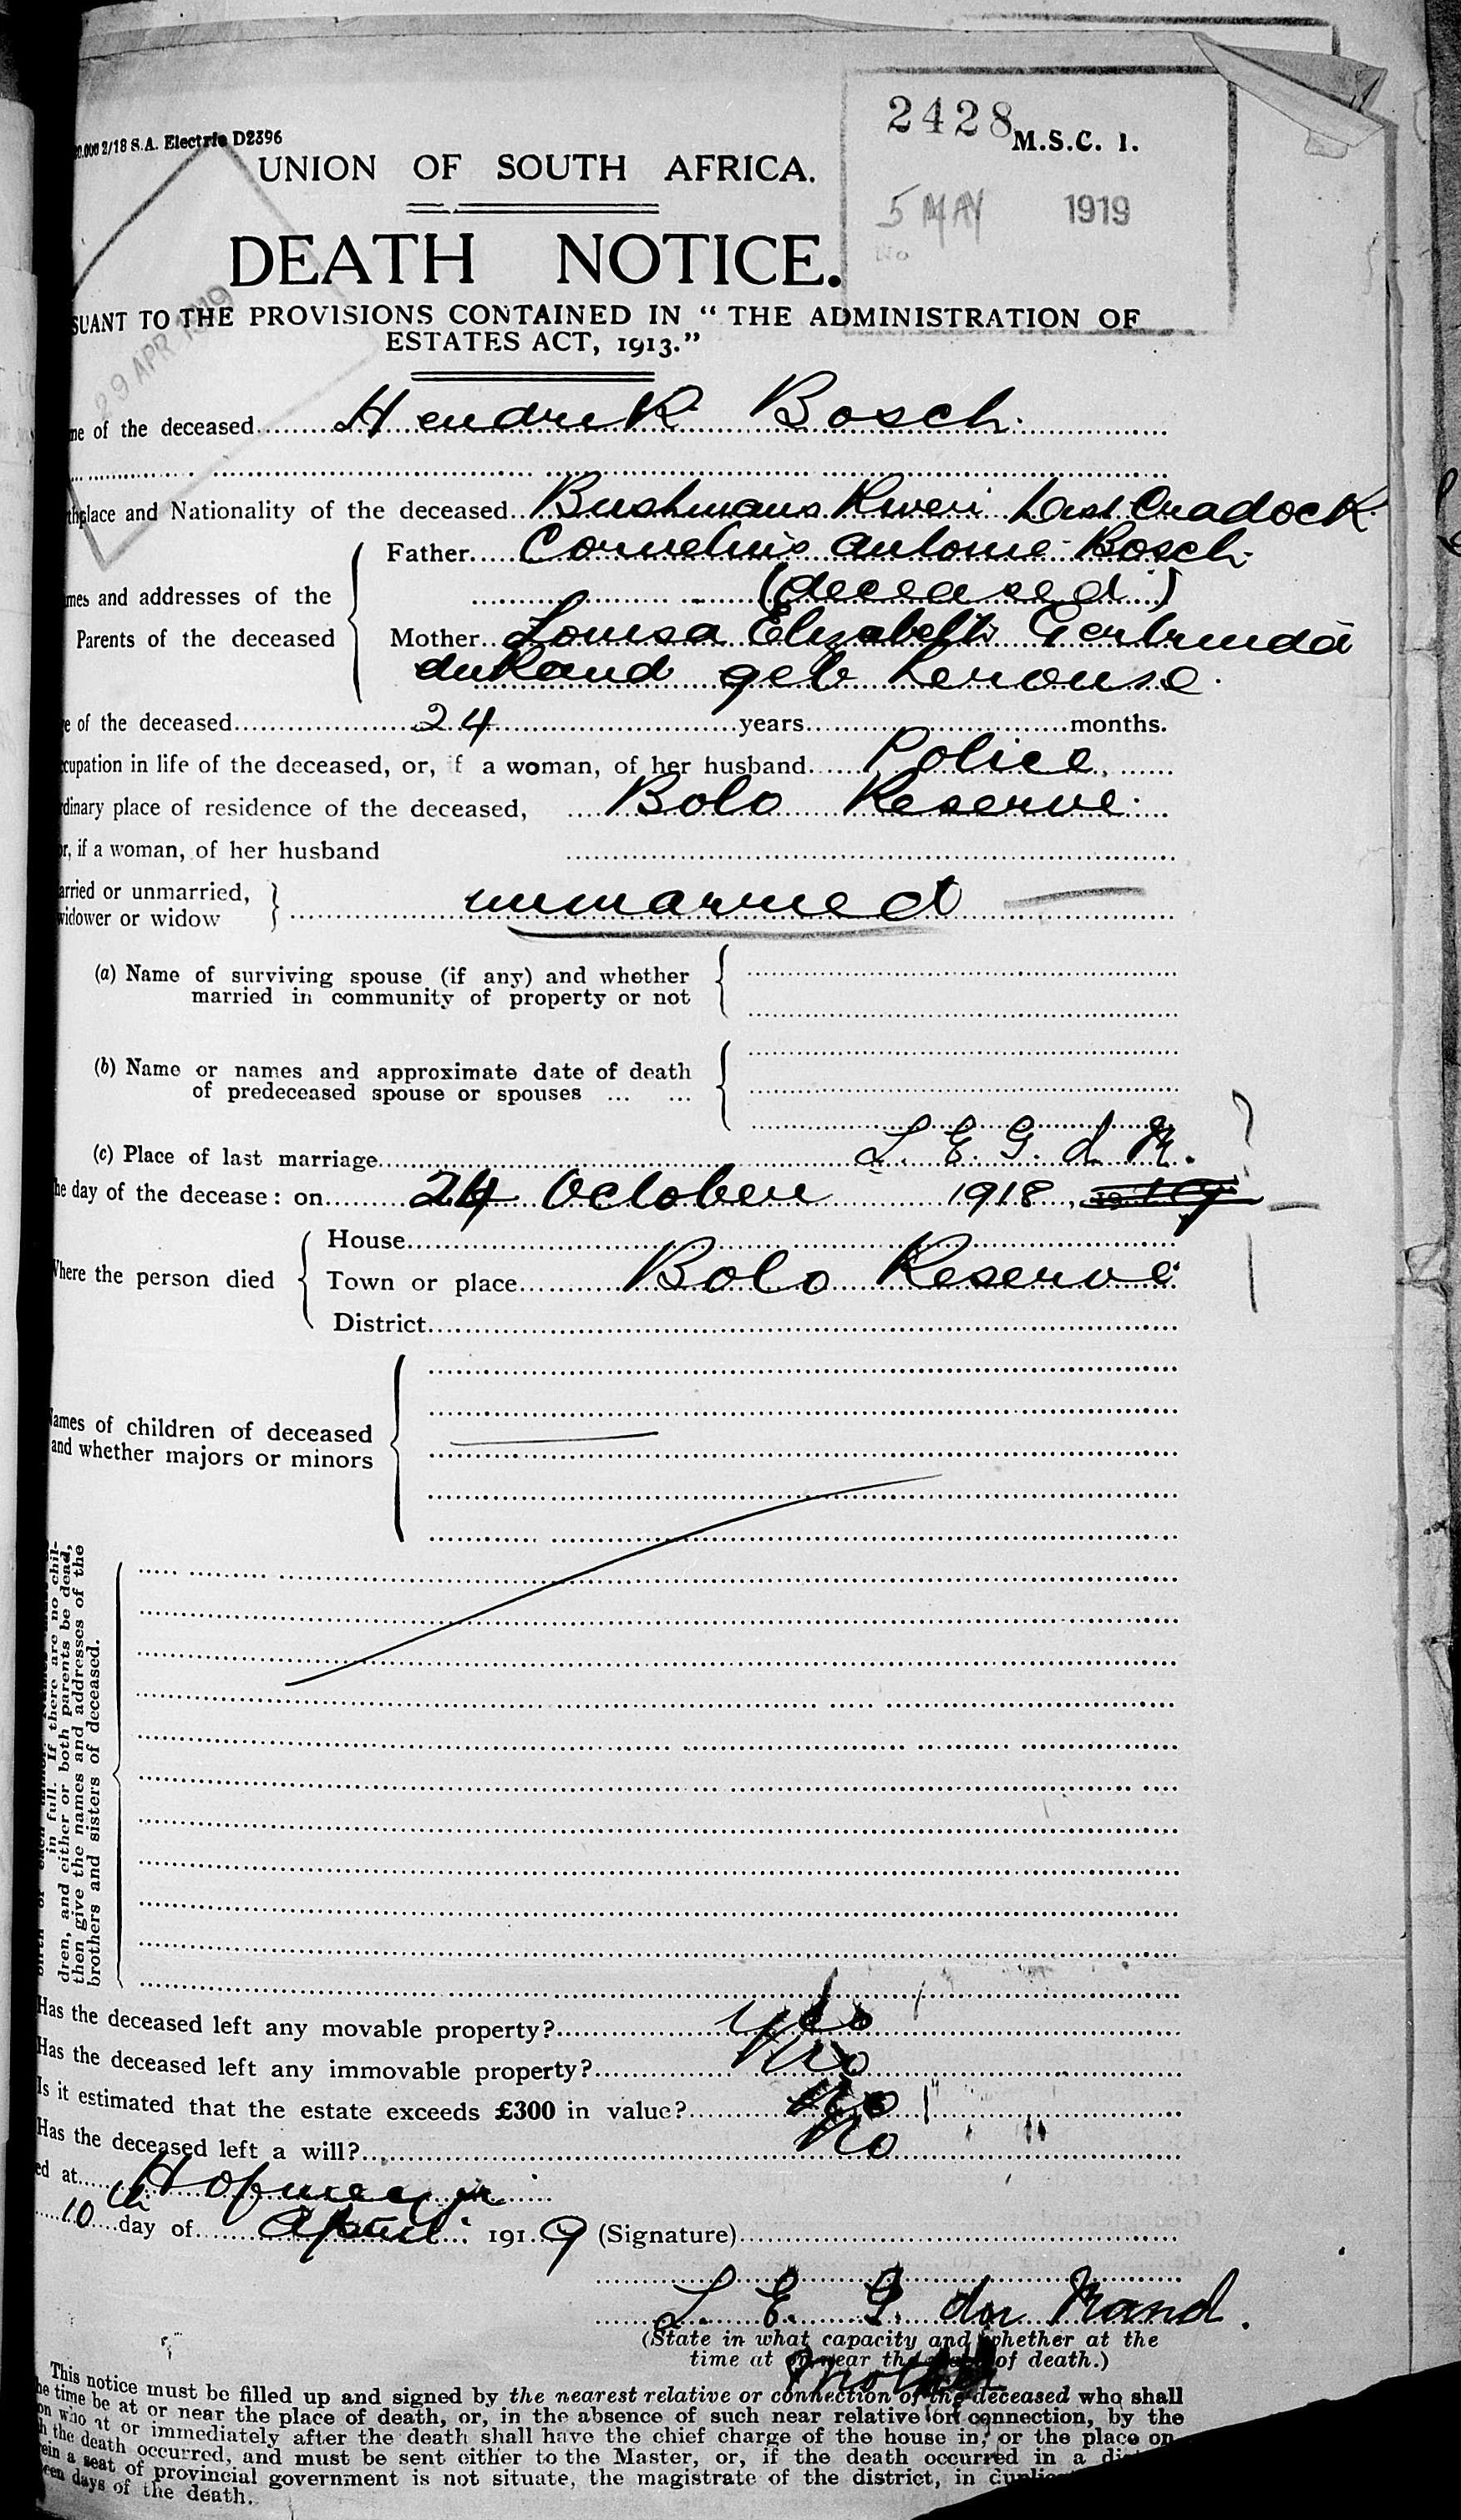 2428 M.S.C. 1.
0.000 2/18 S.A. Electric D2396
UNION OF SOUTH AFRICA.
5 MAY 1919
No
DEATH NOTICE.
29 APR 1919
SUANT TO THE PROVISIONS CONTAINED IN “ THE ADMINISTRATION OF
ESTATES ACT, 1913.”
me of the deceased Hendrik Bosch
thplace and Nationality of the deceased Bushmans River Cradock
Father Cornelius Antonie Bosch
(deceased)
mes and addresses of the
Parents of the deceased
Mother Louisa Elizabeth Gertruida
du Rand geb Lerouse
e of the deceased 24 years months.
cupation in life of the deceased, or, if a woman, of her husband Police
rdinary place of residence of the deceased, Bolo Reserve
or, if a woman, of her husband
arried or unmarried,
widower or widow
unmarried
(a) Name of surviving spouse (if any) and whether
married in community of property or not
(b) Name or names and approximate date of death
of predeceased spouse or spouses ... ...
(c) Place of last marriage L. E. G. d R.
he day of the decease : on 24 October 1918,
Where the person died
House
Town or place Bolo Reserve
District
ames of children of deceased
and whether majors or minors
in full. If there are no chil-
dren, and either or both parents be dead,
then give the names and addresses of the
brothers and sisters of deceased.
Has the deceased left any movable property? Yes
Has the deceased left any immovable property? No
Is it estimated that the estate exceeds £300 in value? No
Has the deceased left a will? No
ed at Hofmeyr
10th day of April 1919 (Signature)
L. E. G. du Rand.
(State in what capacity and whether at the
time at or near the of death.)
Mother
This notice must be filled up and signed by the nearest relative or connection of the deceased who shall
he time be at or near the place of death, or, in the absence of such near relative or connection, by the
on who at or immediately after the death shall have the chief charge of the house in, or the place on
h the death occurred, and must be sent either to the Master, or, if the death occurred in a
ein a seat of provincial government is not situate, the magistrate of the district, in
een days of the death.